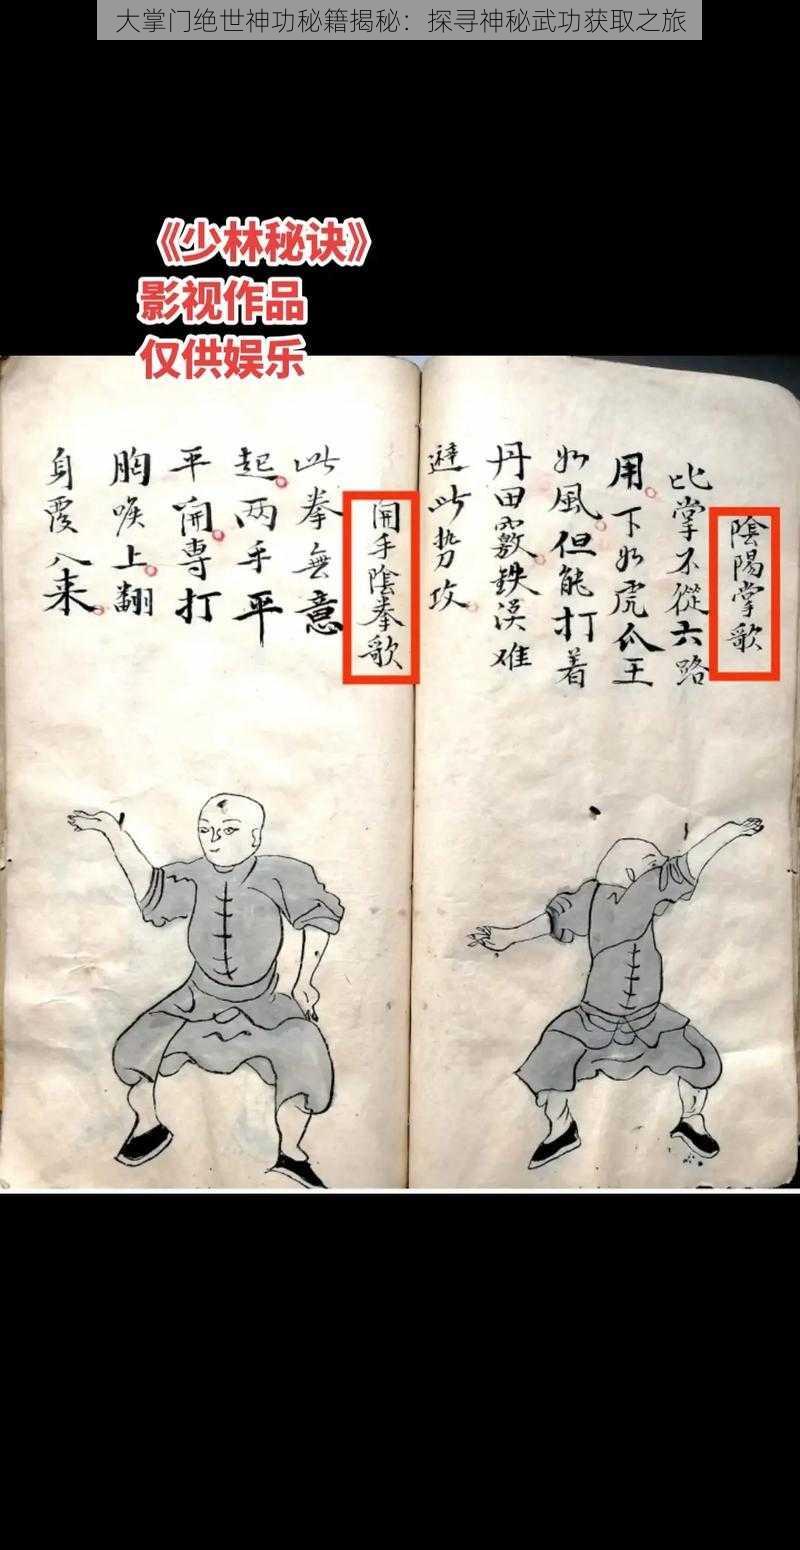 大掌门绝世神功秘籍揭秘：探寻神秘武功获取之旅
《少林秘诀》
影视作品
仅供娱乐
陰陽掌歌
此掌不從六路
用下如虎爪王
如風但能打着
丹田竅鉄漢难
避此勢攻
開手陰拳歌
此拳無意
起两手平
平開專打
胸喉上翻
身覆入来